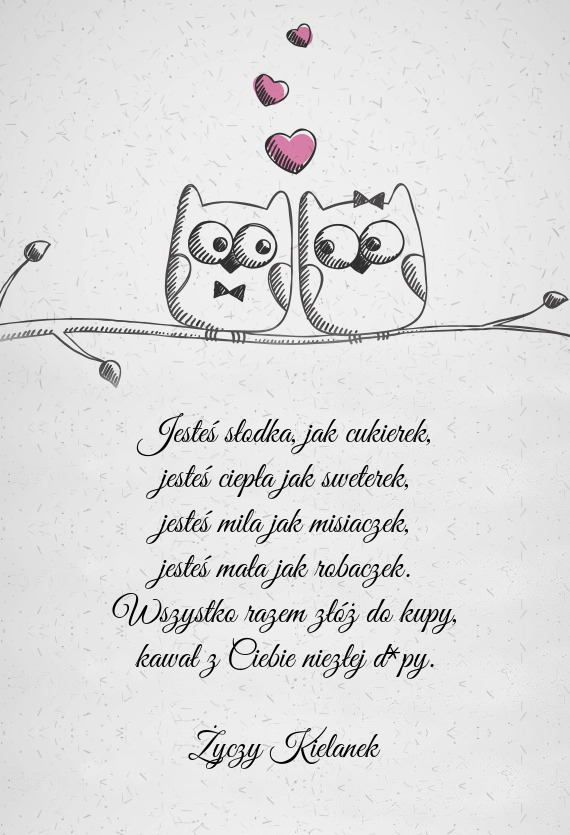 Jesteś słodka, jak cukierek,
jesteś ciepła jak sweterek,
jesteś mila jak misiaczek,
jesteś mała jak robaczek.
Wszystko razem złóż do kupy,
kawał z Ciebie niezłej d*py.
Życzy Kielanek